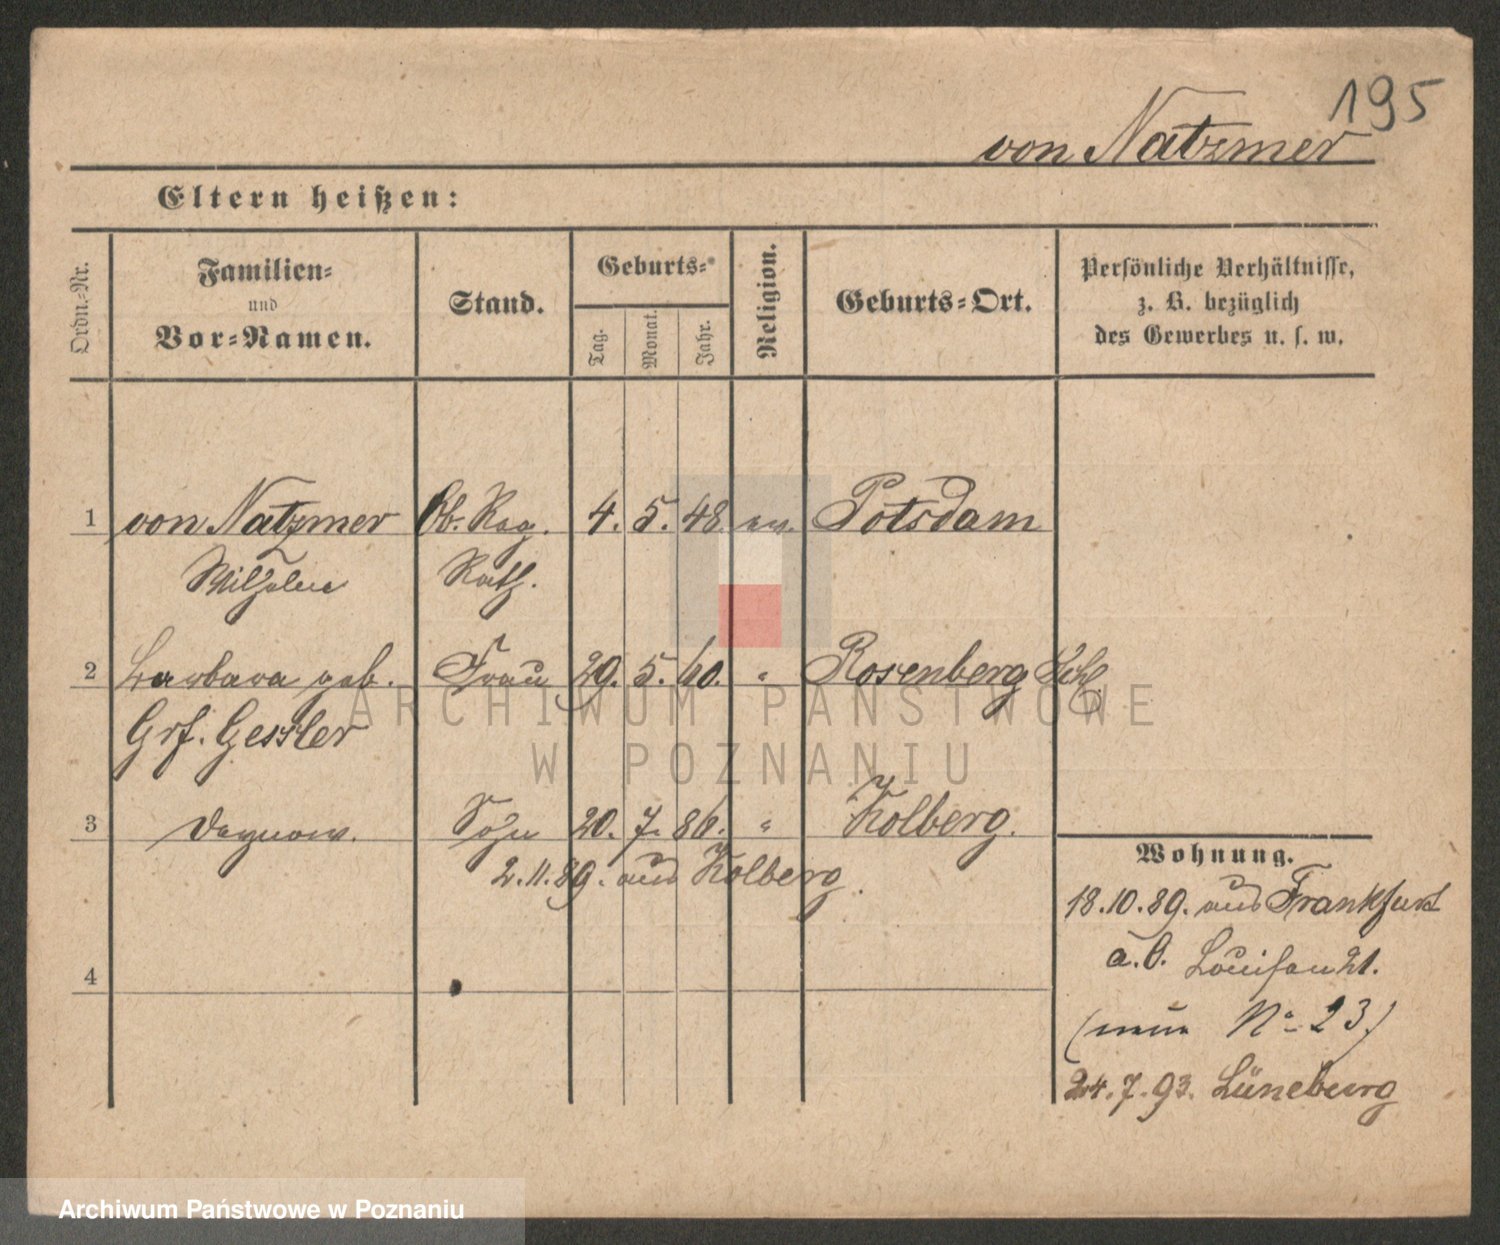 195
von Natzmer
Eltern heißen:
Ordn.-Nr.
Familien-
und
Vor-Namen.
Stand.
Geburts-
Tag.
Monat.
Jahr.
Religion.
Geburts-Ort.
Persönliche Verhältnisse,
z. B. bezüglich
des Gewerbes u. s. w.
1 von Natzmer Ob. Reg. 4. 5. 48. ev. Potsdam
Wilhelm Rath.
2 Barbara geb. Frau 29. 5. 60. " Rosenberg Schl.
Grf. Gessler
3 Sohn 20. 7. 86. " Kolberg.
2.11.89. aus Kolberg.
4
Wohnung.
18.10.89. aus Frankfurt
a.O. Louisen 21.
(neue No 23)
24.7.93. Lüneburg
ARCHIWUM PAŃSTWOWE
W POZNANIU
Archiwum Państwowe w Poznaniu